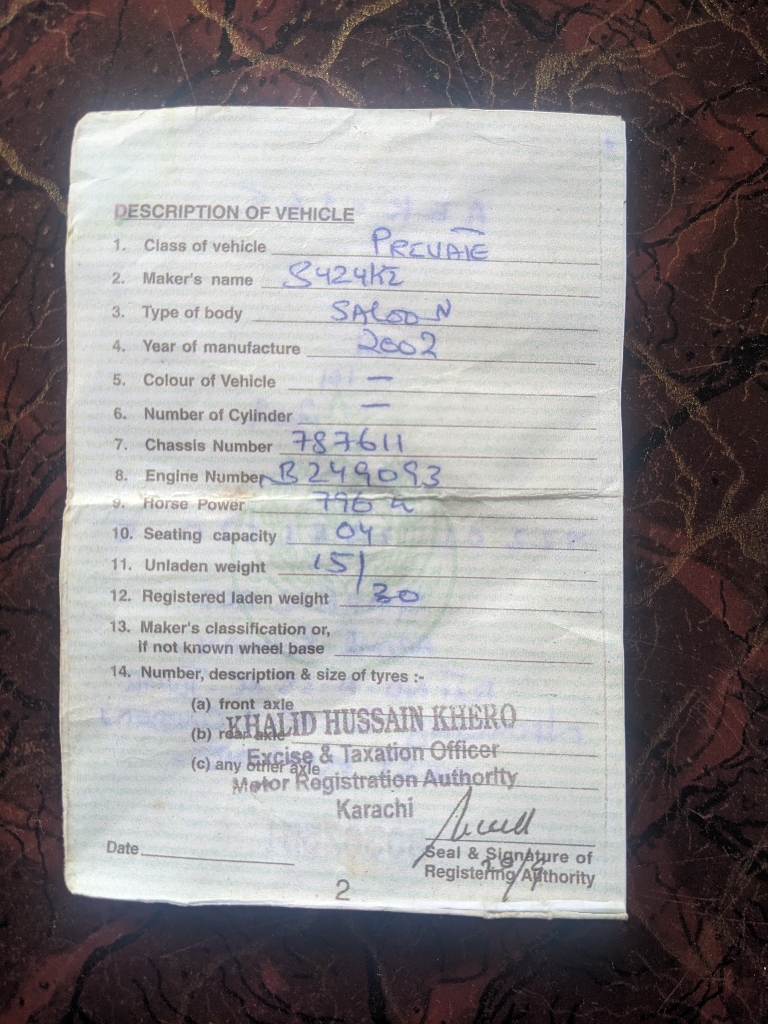 DESCRIPTION OF VEHICLE
1. Class of vehicle PRIVATE
2. Maker's name SUZUKI
3. Type of body SALOON
4. Year of manufacture 2002
5. Colour of Vehicle —
6. Number of Cylinder —
7. Chassis Number 787611
8. Engine Number B249093
9. Horse Power 796
10. Seating capacity 04
11. Unladen weight 15/
12. Registered laden weight 30
13. Maker's classification or,
if not known wheel base
14. Number, description & size of tyres :-
(a) front axle
KHALID HUSSAIN KHERO
(b) rear axle
Excise & Taxation Officer
(c) any other axle
Motor Registration Authority
Karachi
Date
Seal & Signature of
Registering Authority
2